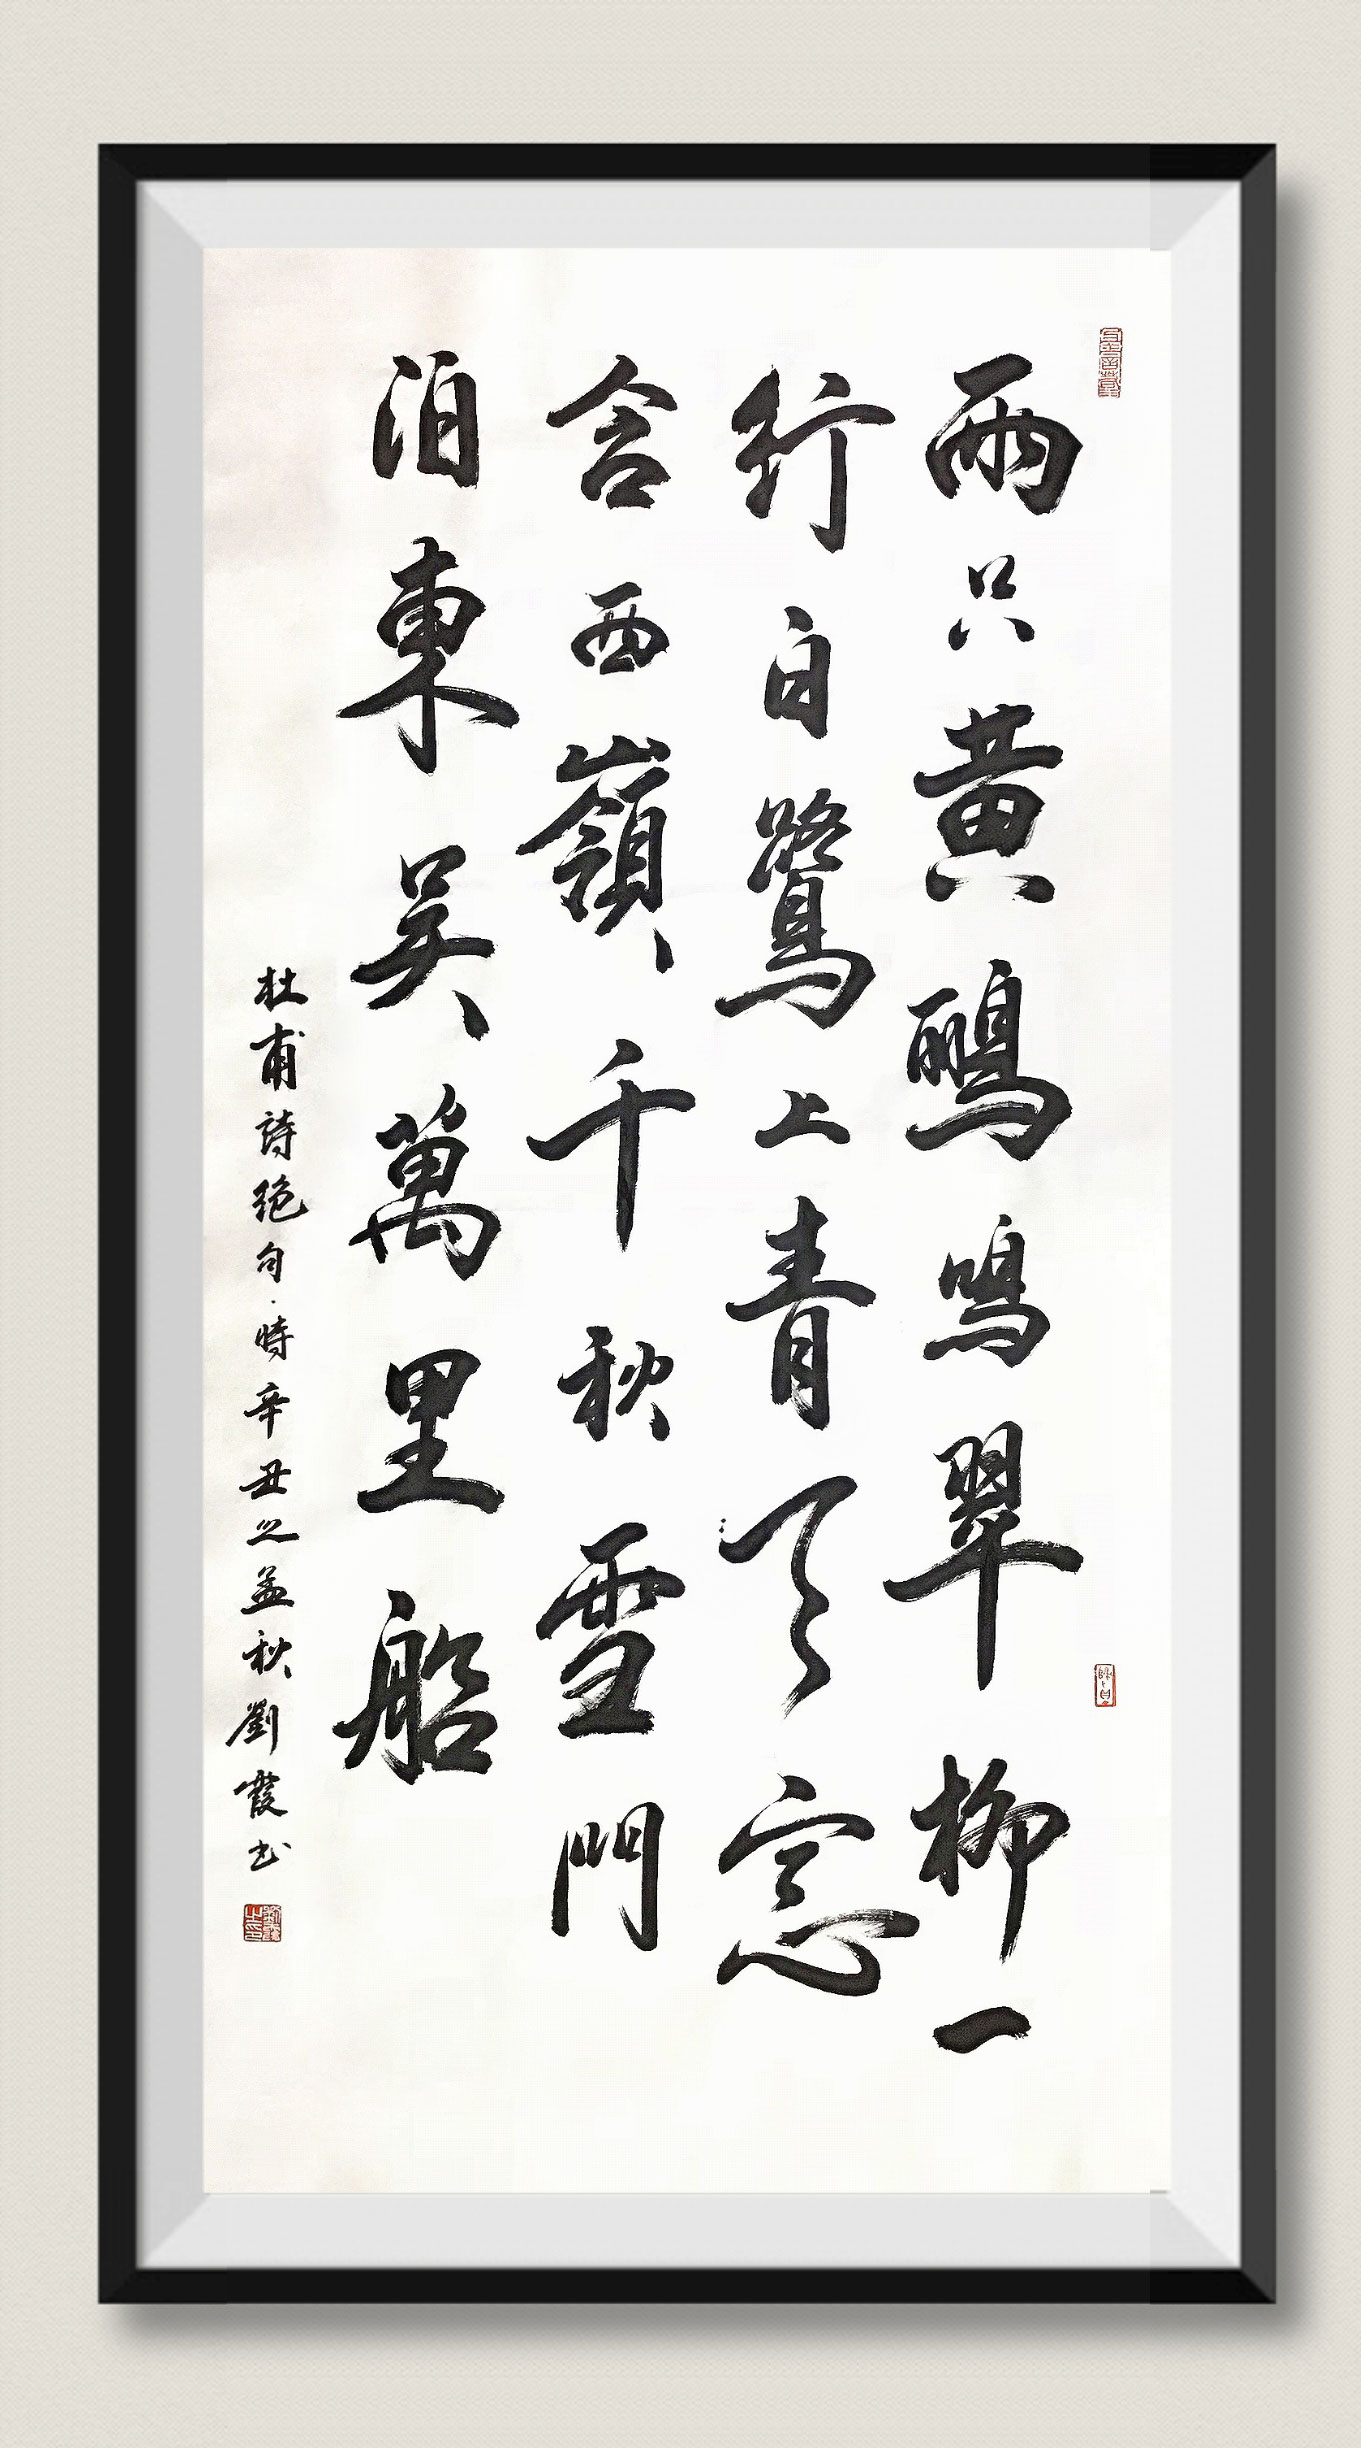 兩只黃鸝鳴翠柳一
行白鷺上青天窓
含西嶺千秋雪門
泊東吳萬里船
杜甫詩絕句·時辛丑之孟秋劉霞书